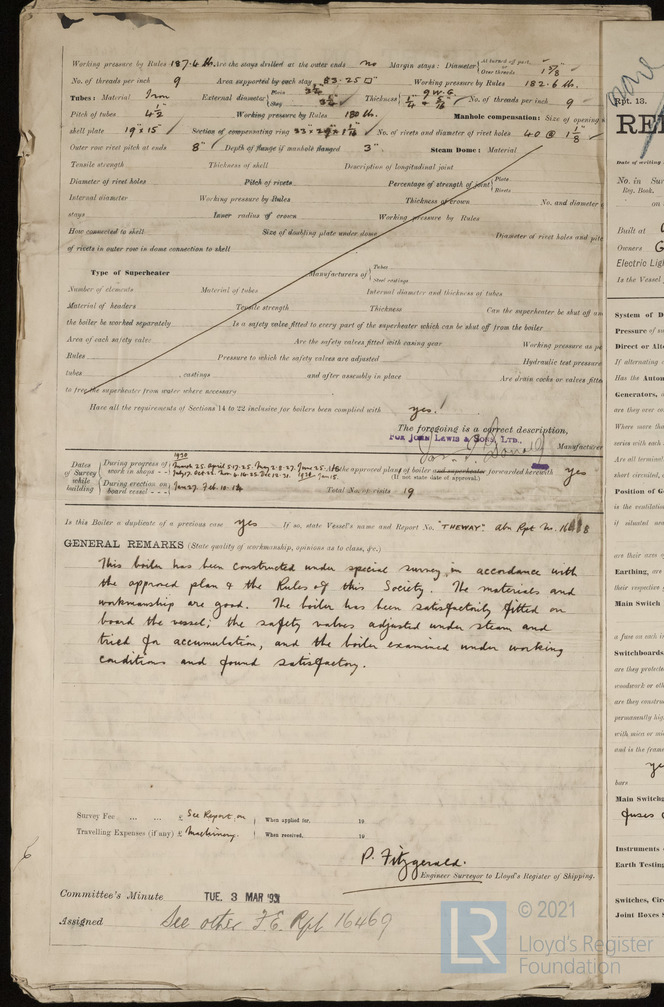 Working pressure by Rules 187.4 lb. Are the stays drilled at the outer ends no Margin stays: Diameter { At turned off part, or Over threads 1 5/8" 
No. of threads per inch 9 Area supported by each stay 83.25 □" Working pressure by Rules 182.6 lb.
Tubes: Material Iron External diameter { Plain 3 1/4" Stay 3 1/4" Thickness { 9 W.G. 1/4 & 5/16" No. of threads per inch 9
Pitch of tubes 4 1/2" Working pressure by Rules 180 lb. Manhole compensation: Size of opening
shell plate 19" x 15" Section of compensating ring No. of rivets and diameter of rivet holes 40 @ 1 1/8"
Outer row rivet pitch at ends 8" Depth of flange if manhole flanged 3" Steam Dome: Material
Tensile strength Thickness of shell Description of longitudinal joint
Diameter of rivet holes Pitch of rivets Percentage of strength of joint { Plate Rivets
Internal diameter Working pressure by Rules Thickness of crown No. and diameter
stays Inner radius of crown Working pressure by Rules
How connected to shell Size of doubling plate under dome Diameter of rivet holes and
of rivets in outer row in dome connection to shell
Type of Superheater Manufacturers of { Tubes Steel castings
Number of elements Material of tubes Internal diameter and thickness of tubes
Material of headers Tensile strength Thickness Can the superheater be shut off
the boiler be worked separately Is a safety valve fitted to every part of the superheater which can be shut off from the boiler
Area of each safety valve Are the safety valves fitted with easing gear Working pressure as
Rules Pressure to which the safety valves are adjusted Hydraulic test pressure
tubes castings and after assembly in place Are drain cocks or valves
to free the superheater from water where necessary
Have all the requirements of Sections 14 to 22 inclusive for boilers been complied with yes.
The foregoing is a correct description,
FOR JOHN LEWIS & SONS, LTD.,
Manufacturer
Dates of Survey while building { During progress of work in shops - - 1930 March 25. April 5.17.25. May 2.8.27. June 25. the approved plans of boiler and superheater forwarded herewith yes
(If not state date of approval.)
During erection on board vessel - - Jan 27. Feb. 10. 14 Total No. of visits 19
Is this Boiler a duplicate of a previous case yes If so, state Vessel's name and Report No. "THEWAY" Abn Rpt No.
GENERAL REMARKS (State quality of workmanship, opinions as to class, &c.)
This boiler has been constructed under special survey in accordance with
the approved plan & the Rules of this Society. The materials and
workmanship are good. The boiler has been satisfactorily fitted on
board the vessel; the safety valves adjusted under steam and
tried for accumulation, and the boiler examined under working
conditions and found satisfactory.
Survey Fee ... ... £ See Report on When applied for, 19
Travelling Expenses (if any) £ Machinery. When received, 19
P. Fitzgerald.
Engineer Surveyor to Lloyd's Register of Shipping.
Committee's Minute TUE. 3 MAR 1931
Assigned See other F.E. Rpt 16469
Rpt. 13.
Date of writing
No. in
Reg. Book.
on
Built at
Owners
Electric
Is the Vessel
System of
Pressure of
Direct or
If alternating
Has the
Generators,
are they over
Where more
series with each
Are all
short circuited,
Position of
is the
if situated
are their
Earthing, are
their respective
Main Switch
a fuse on each
Switchboards,
are they
woodwork or
are they
permanently
with mica or
and is the
bars
Main
fuses
Instruments
Earth
Switches,
Joint Boxes
LR © 2021
Lloyd's Register
Foundation